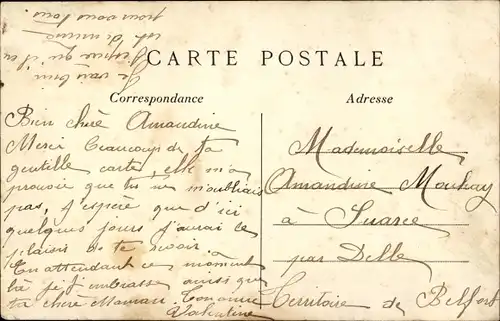 CARTE POSTALE
Correspondance
Bien chère Amandine
Merci beaucoup de ta
gentille carte, elle m'a
prouvér que tu ne m'oubliais
pas, j'espère que d'ici
quelques jours j'aurai le
plaisir de te revoir.
En attendant ce moment
là je t'embrasse ainsi que
ta chère Maman. Ton amie
Valentine
Je vais bien
j'espère qu'il en
est de même
pour vous tous
Adresse
Mademoiselle
Amandine
à Suarce
par Delle
Territoire de Belfort